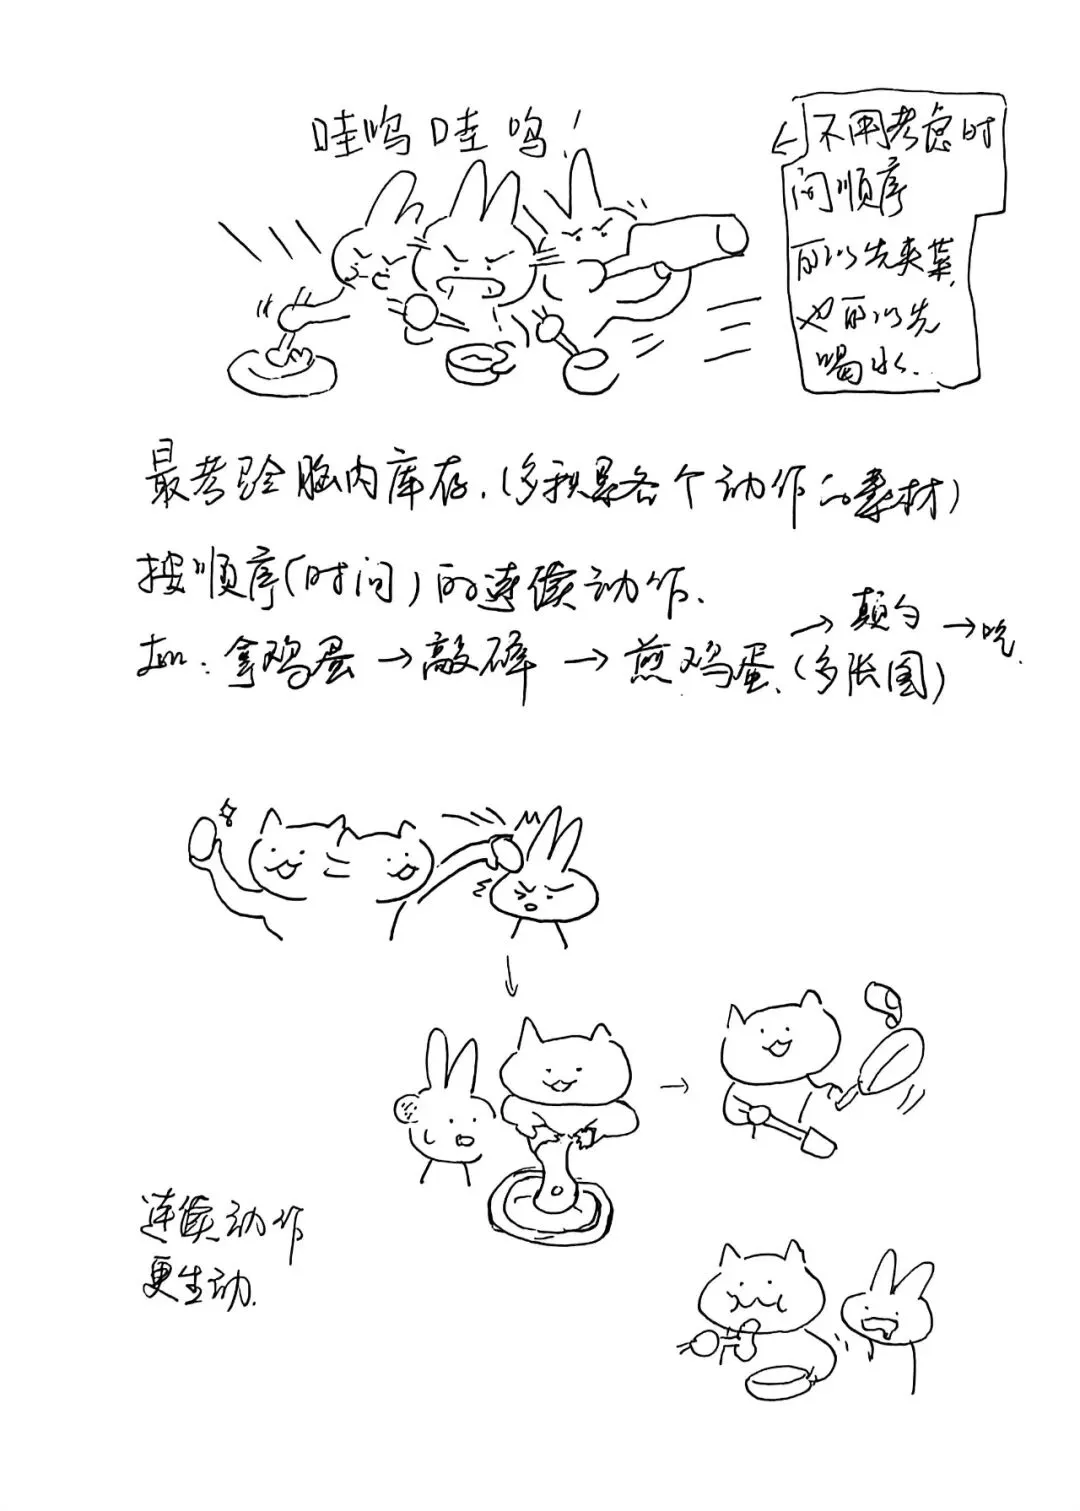 哇呜哇呜！
←不用考虑时
间顺序
可以先夹菜
也可以先
喝水...
最考验脑内库存.(多积累各个动作的素材)
按顺序(时间)的连续动作.
如:拿鸡蛋→敲碎→煎鸡蛋.(多张图)→颠勺→吃.
连续动作
更生动.